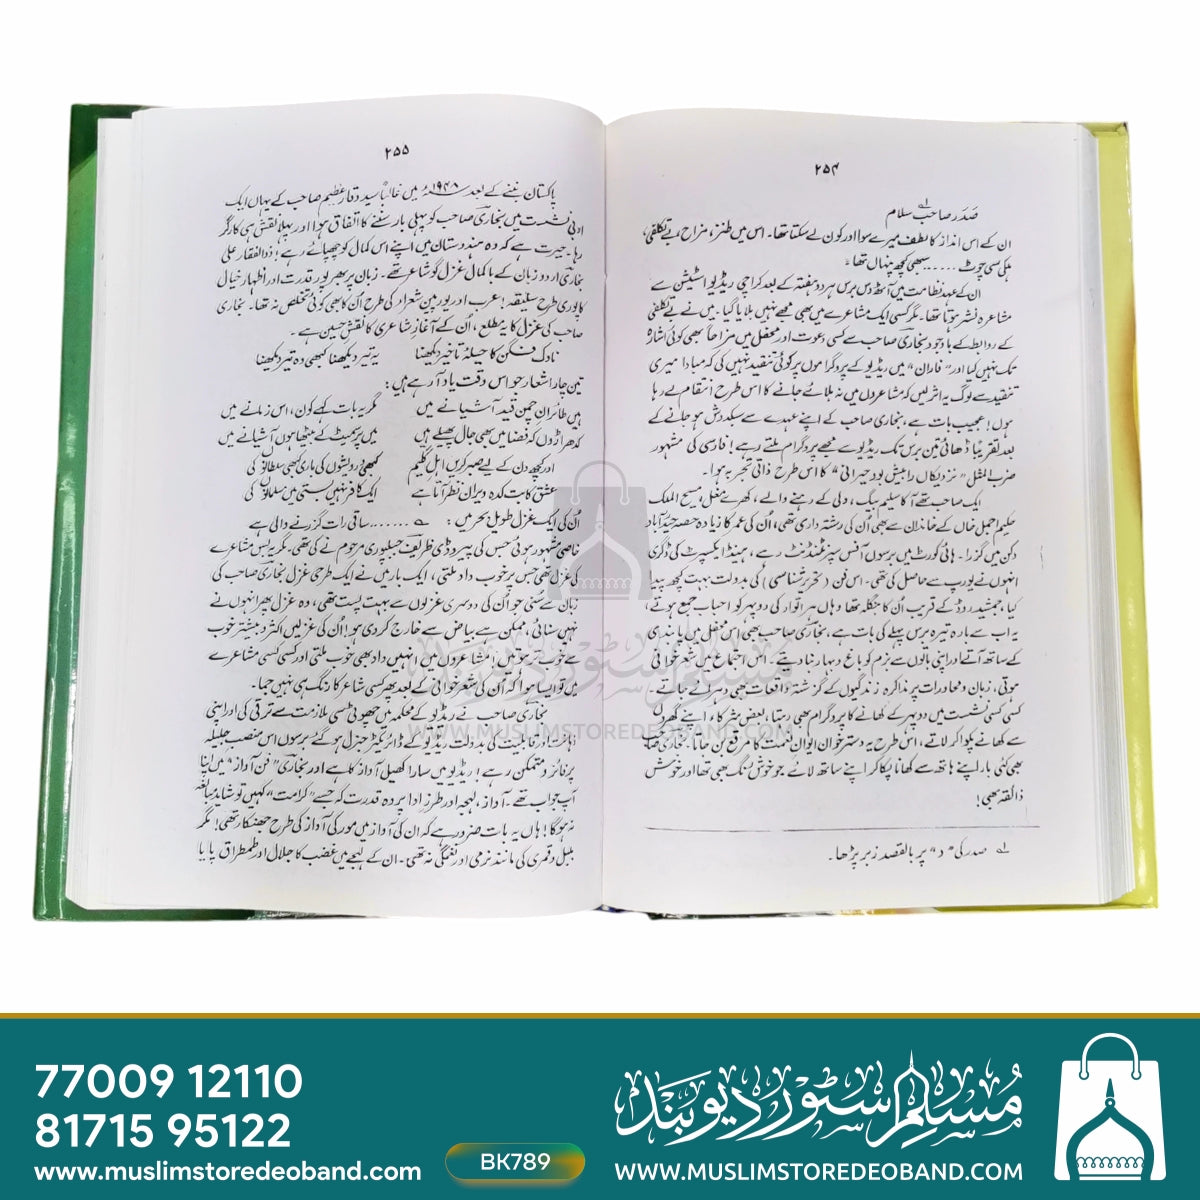 ۲۵۴
صَدَر صاحب سلام
ان کے اس انداز کا لطف میرے سوا اور کون لے سکتا تھا۔ اس میں طنز، مزاح، بے تکلفی،
ہلکی سی چوٹ ...... سبھی کچھ پنہاں تھا۔
ان کے عہدِ نظامت میں آٹھ دس برس ہر دو ہفتہ کے بعد کراچی ریڈیو اسٹیشن سے
مشاعرہ نشر ہوتا تھا۔ مگر کسی ایک مشاعرے میں بھی مجھے نہیں بلایا گیا۔ میں نے بے تکلفی
کے روابط کے باوجود بخاری صاحب سے کسی دعوت اور محفل میں مزاحاً بھی کوئی اشارہ
تک نہیں کیا اور "فاران" میں ریڈیو کے پروگراموں پر کوئی تنقید نہیں کی کہ مبادا میری
تنقید سے لوگ یہ اثر لیں کہ مشاعروں میں نہ بلائے جانے کا اس طرح انتقام لے رہا
ہوں! عجیب بات ہے، بخاری صاحب کے اپنے عہدے سے سبکدوش ہو جانے کے
بعد تقریباً ڈھائی تین برس تک ریڈیو سے مجھے پروگرام ملتے رہے! فارسی کی مشہور
ضرب المثل "نزدیکاں را بیش بود حیرانی" کا اس طرح ذاتی تجربہ ہوا۔
ایک صاحب تھے آغا سلیم بیگ، دلی کے رہنے والے، کھرے مغل، مسیح الملک
حکیم اجمل خاں کے خاندان سے بھی اُن کی رشتہ داری تھی، اُن کی عمر کا زیادہ حصہ حیدرآباد
دکن میں گزرا۔ ہائی کورٹ میں برسوں آفس سپرنٹنڈنٹ رہے، ہینڈ ایکسپرٹ کی ڈگری
انہوں نے یورپ سے حاصل کی تھی۔ اس فن (تحریر شناسی) کی بدولت بہت کچھ پیدا
کیا، جمشید روڈ کے قریب اُن کا بنگلہ تھا وہاں ہر اتوار کی دوپہر کو احباب جمع ہوتے،
یہ اب سے بارہ تیرہ برس پہلے کی بات ہے، بخاری صاحب بھی اس محفل میں پابندی
کے ساتھ آتے اور اپنی باتوں سے بزم کو باغ و بہار بنا دیتے۔ اس اجتماع میں شعر خوانی
ہوتی، زبان و محاورات پر مذاکرہ، زندگیوں کے گزشتہ واقعات بھی دہرائے جاتے۔
کسی کسی نشست میں دوپہر کے کھانے کا پروگرام بھی رہتا، بعض شرکاء اپنے گھروں
سے کھانے پکوا کر لاتے، اس طرح یہ دسترخوان ایوانِ نعمت کا مرقع بن جاتا۔ بخاری صاحب
بھی کئی بار اپنے ہاتھ سے کھانا پکا کر اپنے ساتھ لائے جو خوش رنگ بھی تھا اور خوش
ذائقہ بھی!
صدر کی "د" پر بالقصد زبر پڑھا۔
۲۵۵
پاکستان بننے کے بعد ۱۹۴۸ء میں غالباً سید وقار عظیم صاحب کے یہاں ایک
ادبی نشست میں بخاری صاحب کو پہلی بار سننے کا اتفاق ہوا اور پہلا نقش ہی کارگر
رہا۔ حیرت ہے کہ وہ ہندوستان میں اپنے اس کمال کو چھپائے رہے! ذوالفقار علی
بخاری اردو زبان کے باکمال غزل گو شاعر تھے۔ زبان پر بھرپور قدرت اور اظہارِ خیال
کا پوری طرح سلیقہ! عرب اور یورپین شعراء کی طرح اُن کا بھی کوئی تخلص نہ تھا۔ بخاری
صاحب کی غزل کا یہ مطلع، اُن کے آغازِ شاعری کا نقشِ حسین ہے۔
ناوک فگن کا حیلۂ تاخیر دیکھنا یہ تیر دیکھنا کبھی وہ تیر دیکھنا
تین چار اشعار جو اس وقت یاد آ رہے ہیں:
ہیں طائرانِ چمن قید آشیانے میں مگر یہ بات کہے کون، اس زمانے میں
کدھر اڑوں کہ فضا میں بھی جال پھیلے ہیں میں پر سمیٹ کے بیٹھا ہوں آشیانے میں
اور کچھ دن کے لیے صبر کریں اہلِ گلیم کبھی درویشوں کی باری کبھی سلطانوں کی
عشق کا بت کدہ ویران نظر آتا ہے ایک کافر نہیں بستی میں مسلمانوں کی
اُن کی ایک غزل طویل بحر میں: ...... ساقی رات گزرنے والی ہے
خاصی مشہور ہوئی جس کی پیروڈی ظریف جبلپوری مرحوم نے کی تھی۔ مگر یہ بس مشاعرے
کی غزل تھی جس پر خوب داد ملتی، ایک بار میں نے ایک طرحی غزل بخاری صاحب کی
زبان سے سُنی جو اُن کی دوسری غزلوں سے بہت پست تھی، وہ غزل پھر انہوں نے
نہیں سنائی، ممکن ہے بیاض سے خارج کر دی ہو! اُن کی غزلیں اکثر و بیشتر خوب
سے خوب تر ہوتیں! مشاعروں میں انہیں داد بھی خوب ملتی اور کسی کسی مشاعرے
میں تو ایسا ہوا کہ اُن کی شعر خوانی کے بعد پھر کسی شاعر کا رنگ ہی نہیں جما۔
بخاری صاحب نے ریڈیو کے محکمہ میں چھوٹی سی ملازمت سے ترقی کی اور اپنی
ذہانت اور قابلیت کی بدولت ریڈیو کے ڈائریکٹر جنرل ہو گئے برسوں اس منصب جلیلہ
پر فائز و متمکن رہے! ریڈیو میں سارا کھیل آواز کا ہے اور بخاری "فنِ آواز" میں اپنا
آپ جواب تھے۔ آواز، لہجہ اور طرزِ ادا پر وہ قدرت کہ جسے "کرامت" کہیں تو شاید مبالغہ
نہ ہوگا! ہاں یہ بات ضرور ہے کہ ان کی آواز میں مور کی آواز کی طرح جھنکار تھی! مگر
بلبل و قمری کی مانند نرمی اور نغمگی نہ تھی۔ ان کے لہجے میں غضب کا جلال اور طمطراق پایا
مسلم سٹور دیوبند
WWW.MUSLIMSTOREDEOBAND.COM
77009 12110
81715 95122
www.muslimstoredeoband.com
BK789
مسلم سٹور دیوبند
WWW.MUSLIMSTOREDEOBAND.COM